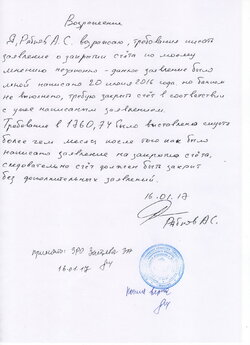 Возражение
Я, Рябов А.С. возражаю, требования писать
заявление о закрытии счёта по моему
мнению незаконно - данное заявление было
мной написано 20 июля 2016 года, но банком
не выполнено, требую закрыть счёт в соответствии
с уже написанным заявлением.
Требование в 1760,74 было выставлено спустя
более чем месяц после того как было
написано заявление на закрытие счёта,
следовательно счёт должен быть закрыт
без дополнительных заявлений.
16.01.17
Рябов А.С.
принято: ЭРО Зайцева
16.01.17
Копия верна